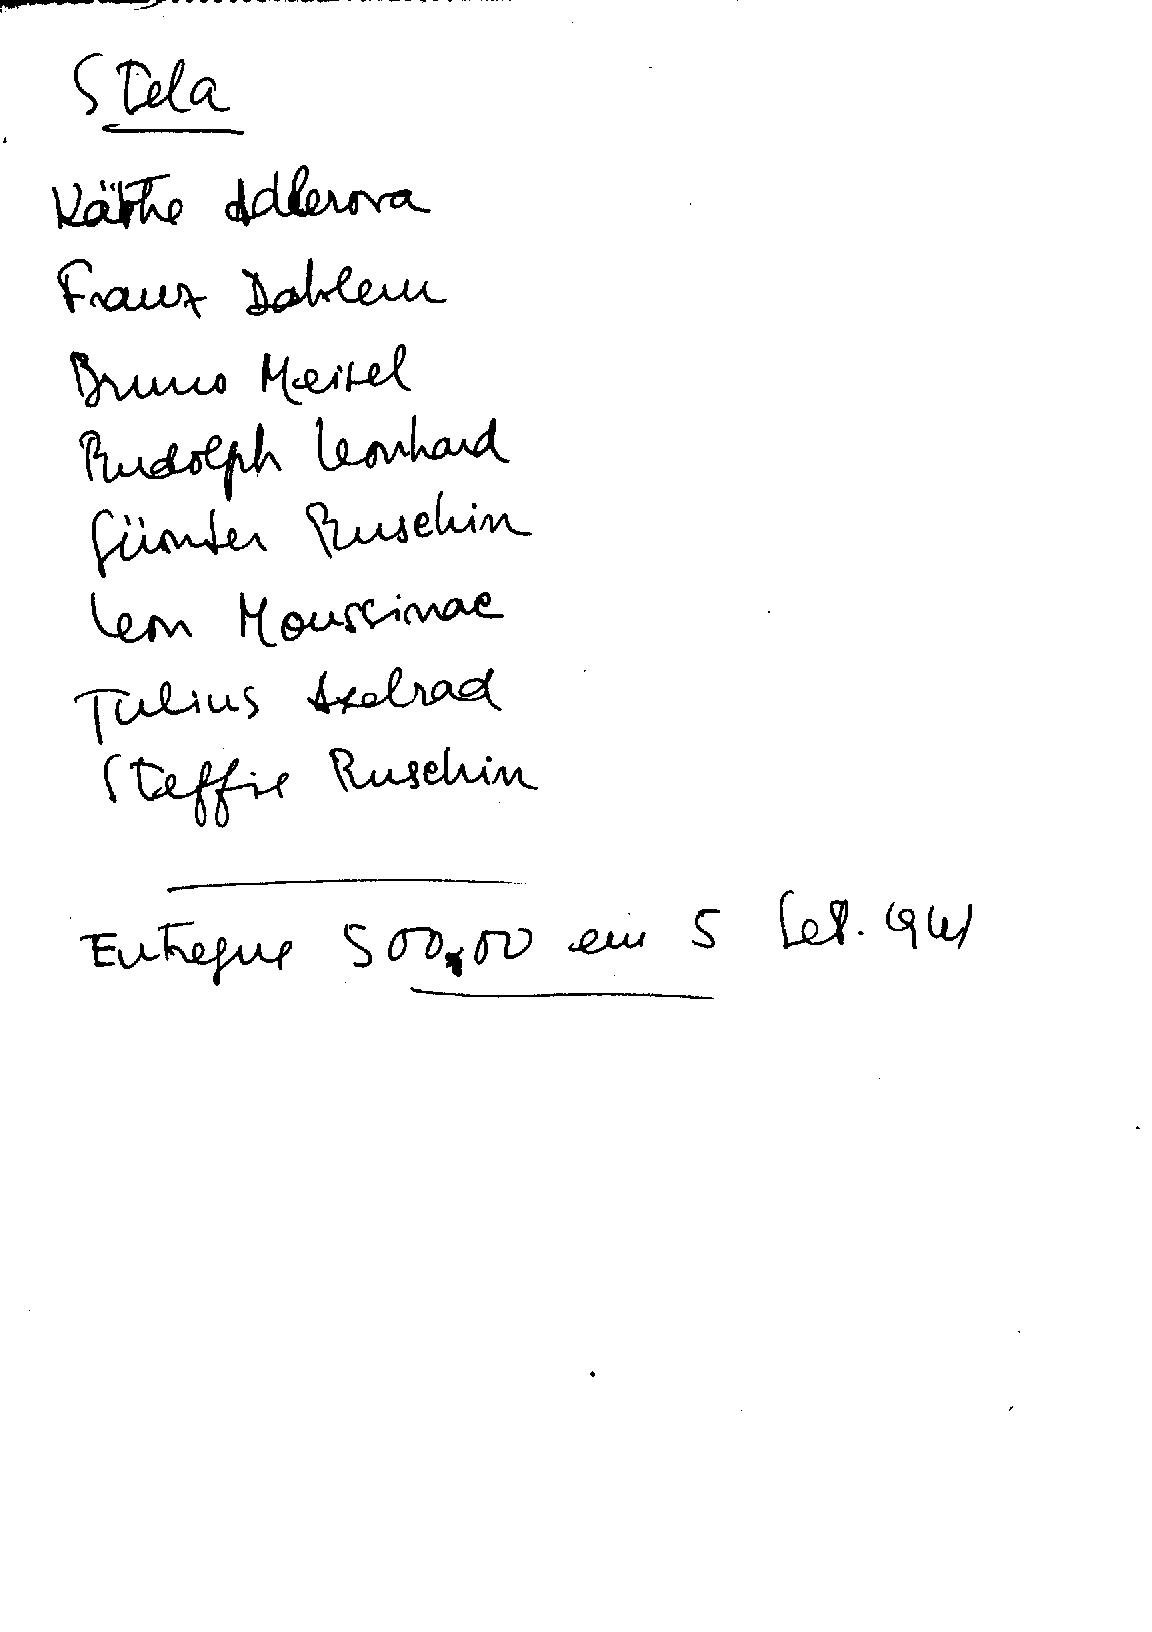 Stela
Käthe Adlerova
Franz Dahlem
Bruno Meisel
Rudolph Leonhard
Günter Ruschin
Leon Moussinac
Julius Axelrad
Steffie Ruschin
Entregue 500,00 em 5 Set. 1941